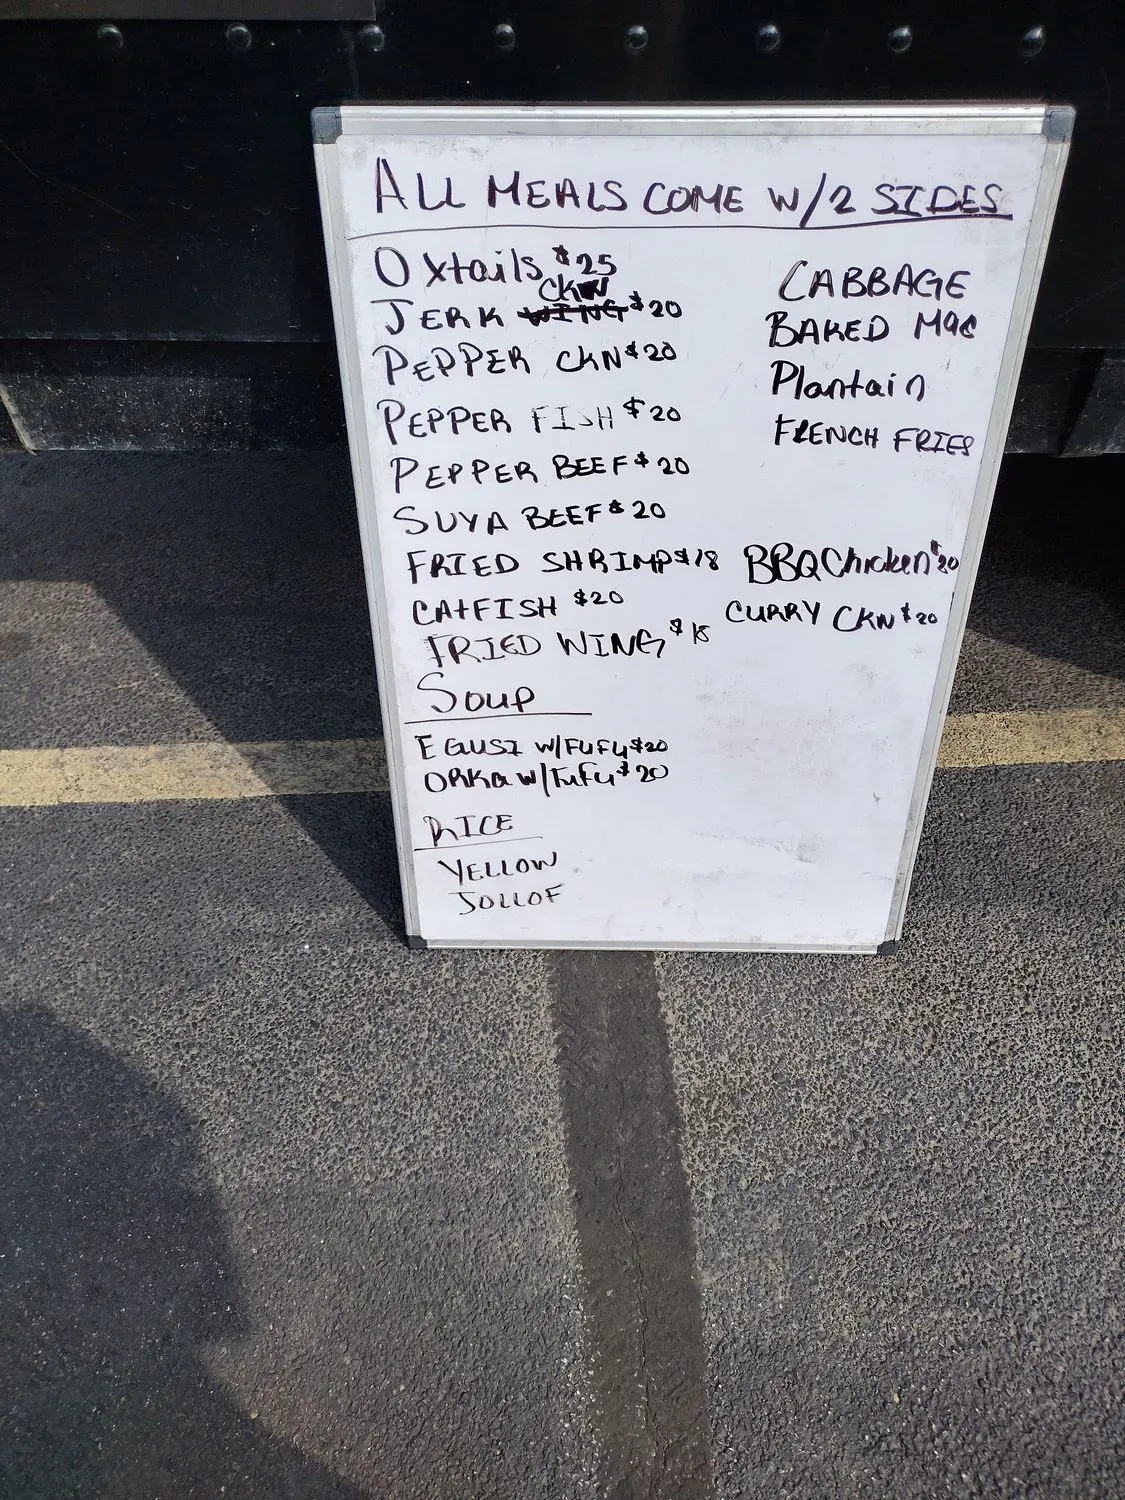 ALL MEALS COME W/2 SIDES
Oxtails $25
CKN
JERK WING $20
PEPPER CKN $20
PEPPER FISH $20
PEPPER BEEF $20
SUYA BEEF $20
FRIED SHRIMP $18
CATFISH $20
FRIED WING $18
CABBAGE
BAKED Mac
Plantain
FRENCH FRIES
BBQ Chicken $20
CURRY CKN $20
Soup
EGUSI W/FUFU $20
ORKa w/FuFu $20
RICE
YELLOW
JOLLOF